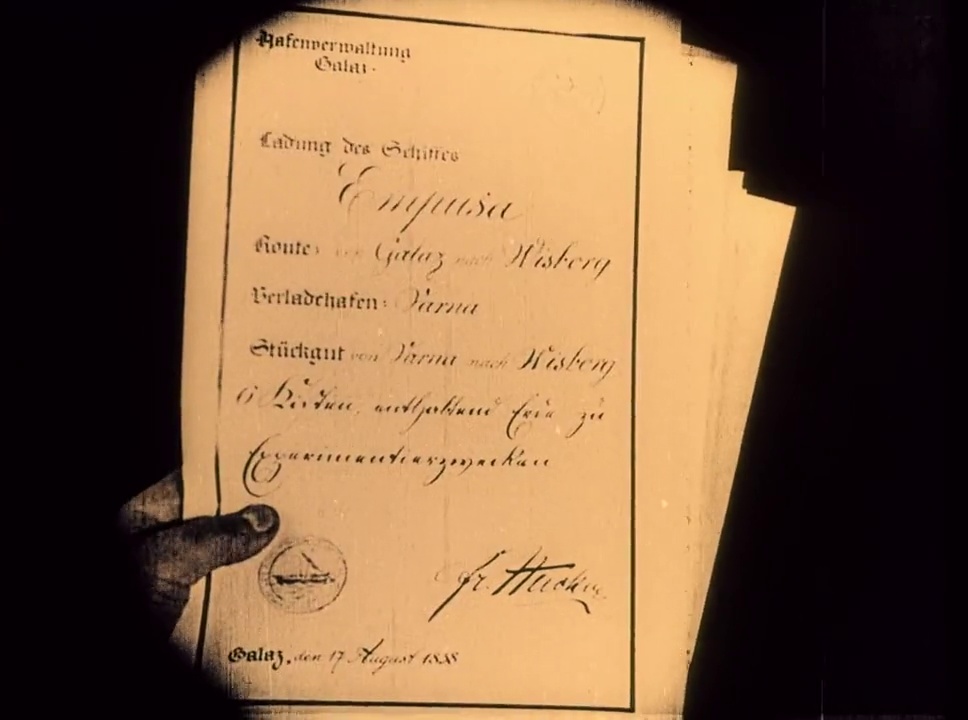 Hafenverwaltung
Galaz.
Ladung des Schiffes
Empusa
Route: von Galaz nach Wisborg
Verladehafen: Varna
Stückgut von Varna nach Wisborg
6 Kisten, enthaltend Erde zu
Experimentierzwecken
Galaz, den 17 August 1838